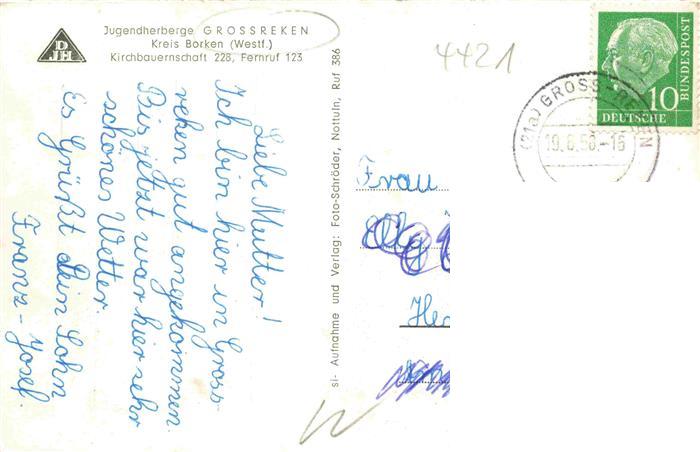 DJH
Jugendherberge GROSSREKEN
Kreis Borken (Westf.)
Kirchbauernschaft 228, Fernruf 123
4421
BUNDESPOST
10
DEUTSCHE
(21a) GROSS-REKEN
19.6.58.-16
Liebe Mutter!
Ich bin hier in Gross-
reken gut angekommen.
Bis jetzt war hier sehr
schönes Wetter.
Es Grüßt dein Sohn
Franz-Josef.
sl- Aufnahme und Verlag: Foto-Schröder, Nottuln, Ruf 386
Frau